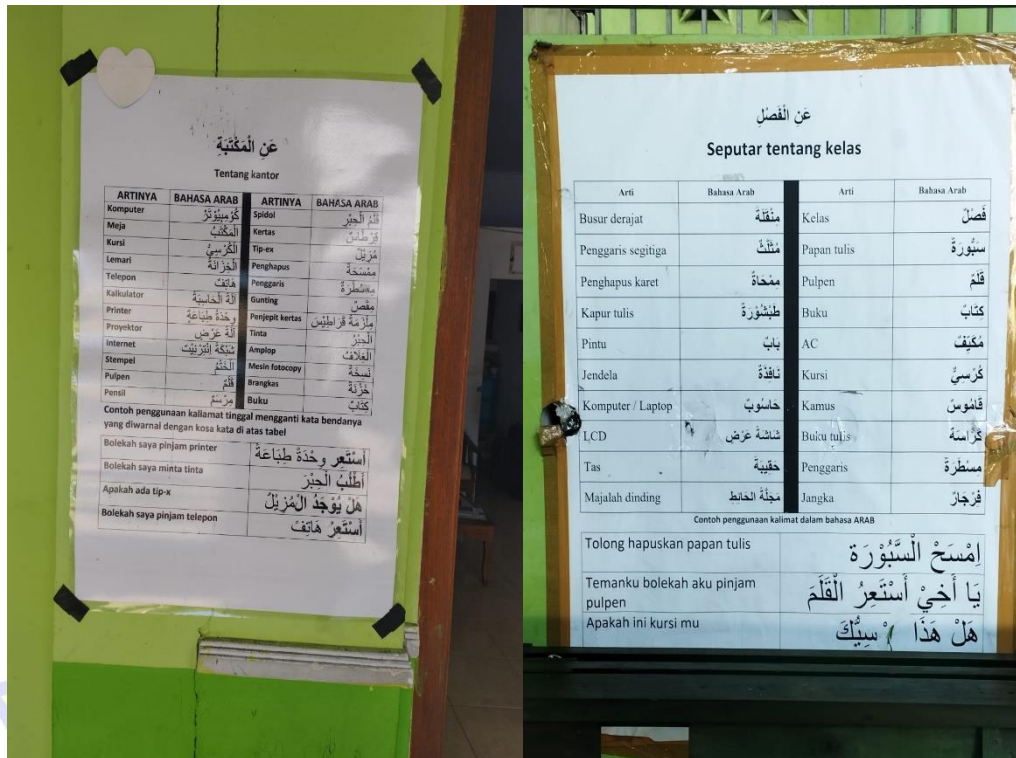 عَنِ الْمَكْتَبَةِ
Tentang kantor
ARTINYA BAHASA ARAB ARTINYA BAHASA ARAB
Komputer كُوْمبِيُوْتَرْ Spidol قَلَمُ الْحِبْرِ
Meja الْمَكْتَبُ Kertas قِرْطَاسٌ
Kursi الْكُرْسِيُّ Tip-ex مُزِيْلٌ
Lemari الْخِزَانَةُ Penghapus مِمْسَحَةٌ
Telepon هَاتِفٌ Penggaris مِسْطَرَةٌ
Kalkulator آلَةُ الْحَاسِبَةُ Gunting مِقَصٌ
Printer وِحْدَةُ طِبَاعَةٍ Penjepit kertas مِلْزَمَةُ قَرَاطِيْسَ
Proyektor آلَةُ عَرْضٍ Tinta الْحِبْرُ
Internet شَبْكَةُ إِنْتَرْنِيْت Amplop الْغِلَافُ
Stempel الْخَتْمُ Mesin fotocopy نَسْخَةٌ
Pulpen قَلَمٌ Brangkas خَزْنَةٌ
Pensil مِرْسَمٌ Buku كِتَابٌ
Contoh penggunaan kaliamat tinggal mengganti kata bendanya
yang diwarnai dengan kosa kata di atas tabel
Bolekah saya pinjam printer أَسْتَعِر وِحْدَةُ طِبَاعَةٌ
Bolekah saya minta tinta أَطْلُبُ الْحِبْرَ
Apakah ada tip-x هَلْ يُوْجَدُ الْمُزِيْلُ
Bolekah saya pinjam telepon أَسْتَعِرُ هَاتِفٌ
عَنِ الْفَصْلِ
Seputar tentang kelas
Arti Bahasa Arab Arti Bahasa Arab
Busur derajat مِنْقَلَةٌ Kelas فَصْلٌ
Penggaris segitiga مُثَلَّثٌ Papan tulis سَبُّوْرَةٌ
Penghapus karet مِمْحَاةٌ Pulpen قَلَمٌ
Kapur tulis طَبْشُوْرَةٌ Buku كِتَابٌ
Pintu بَابٌ AC مُكَيِّفٌ
Jendela نَافِذَةٌ Kursi كُرْسِيٌّ
Komputer / Laptop حَاسُوْبٌ Kamus قَامُوْسٌ
LCD شَاشَةُ عَرْضٍ Buku tulis كُرَّاسَةٌ
Tas حَقِيْبَةٌ Penggaris مِسْطَرَةٌ
Majalah dinding مَجَلَّةُ الحَائِطِ Jangka فِرْجَارٌ
Contoh penggunaan kalimat dalam bahasa ARAB
Tolong hapuskan papan tulis اِمْسَحْ الْسَّبُّوْرَة
Temanku bolekah aku pinjam يَا أَخِيْ أَسْتَعِرُ الْقَلَمَ
pulpen
Apakah ini kursi mu هَلْ هَذَا سِيُّكَ